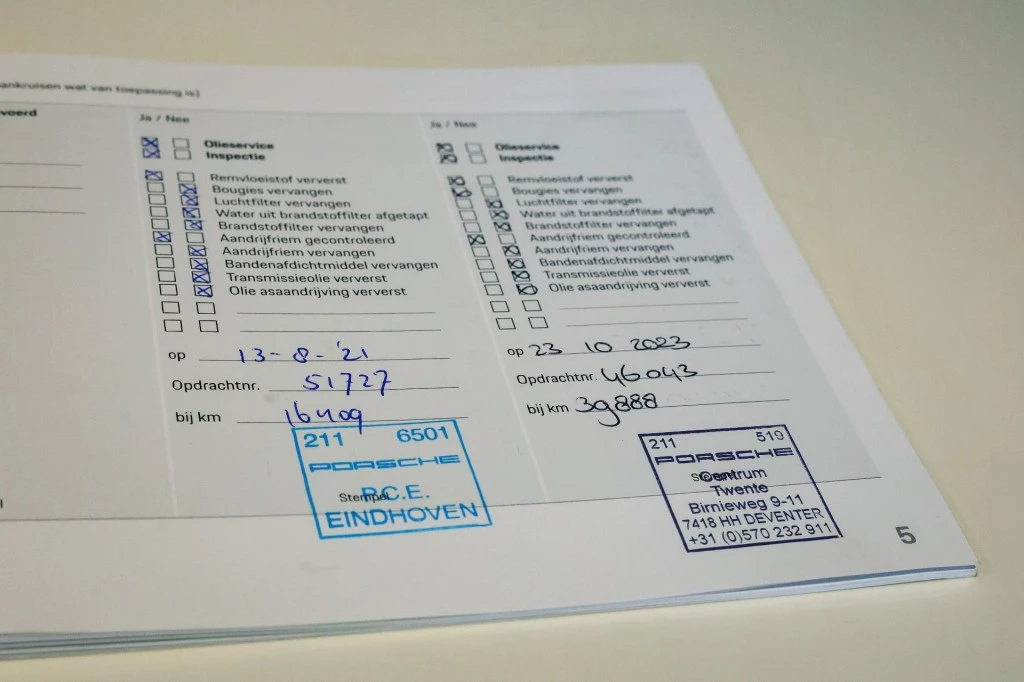 ankruisen wat van toepassing is)
voerd
Ja / Nee
Olieservice
Inspectie
Remvloeistof ververst
Bougies vervangen
Luchtfilter vervangen
Water uit brandstoffilter afgetapt
Brandstoffilter vervangen
Aandrijfriem gecontroleerd
Aandrijfriem vervangen
Bandenafdichtmiddel vervangen
Transmissieolie ververst
Olie asaandrijving ververst
op 13-8-'21
Opdrachtnr. 51727
bij km 16409
211 6501
PORSCHE
Stempel P.C.E.
EINDHOVEN
Ja / Nee
Olieservice
Inspectie
Remvloeistof ververst
Bougies vervangen
Luchtfilter vervangen
Water uit brandstoffilter afgetapt
Brandstoffilter vervangen
Aandrijfriem gecontroleerd
Aandrijfriem vervangen
Bandenafdichtmiddel vervangen
Transmissieolie ververst
Olie asaandrijving ververst
op 23 10 2023
Opdrachtnr. 46043
bij km 39888
211 519
PORSCHE
Centrum
Twente
Birnieweg 9-11
7418 HH DEVENTER
+31 (0)570 232 911
5